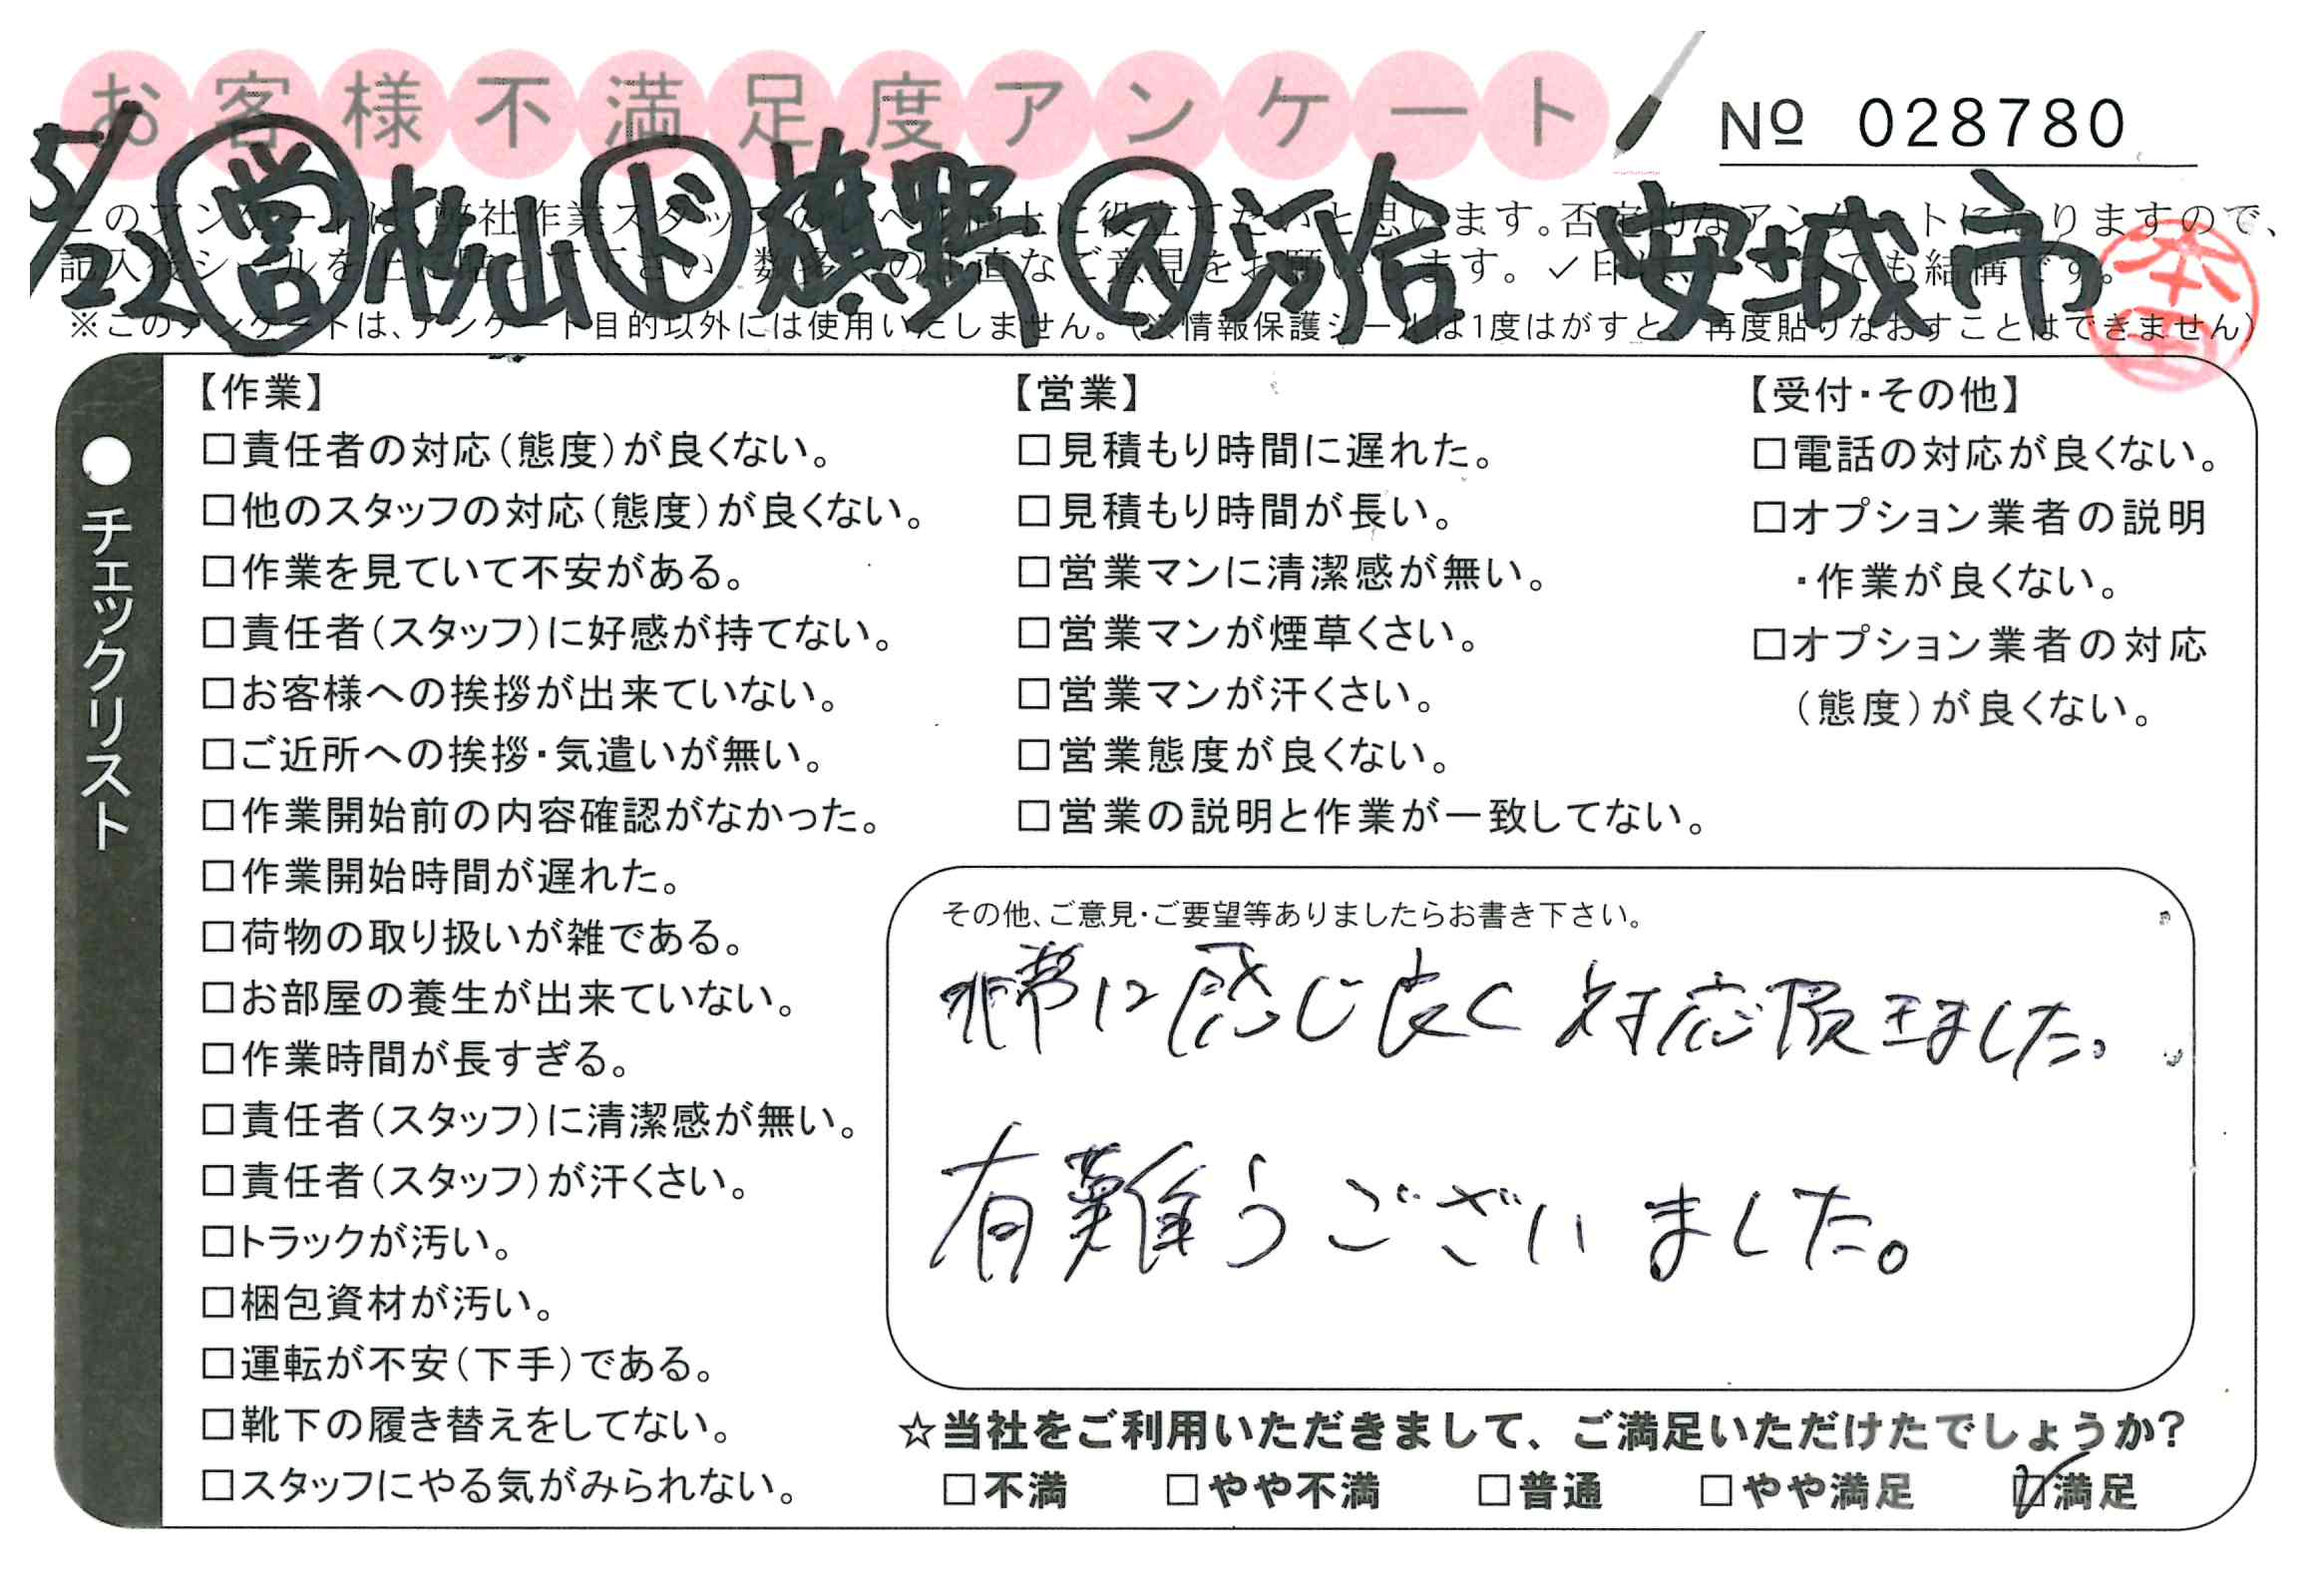 お客様不満足度アンケート
№ 028780
5/22 営 杉山 ド 旗野 ス 河合 安城市
このアンケートは、弊社作業スタッフのレベル向上に役立てたいと思います。否定的なアンケートになりますので、
記入後シールを上に貼って下さい。数多くの正直なご意見をお願いします。✓印
ても結構です。
※このアンケートは、アンケート目的以外には使用いたしません。(※情報保護シールは1度はがすと、再度貼りなおすことはできません)
●チェックリスト
【作業】
□責任者の対応(態度)が良くない。
□他のスタッフの対応(態度)が良くない。
□作業を見ていて不安がある。
□責任者(スタッフ)に好感が持てない。
□お客様への挨拶が出来ていない。
□ご近所への挨拶・気遣いが無い。
□作業開始前の内容確認がなかった。
□作業開始時間が遅れた。
□荷物の取り扱いが雑である。
□お部屋の養生が出来ていない。
□作業時間が長すぎる。
□責任者(スタッフ)に清潔感が無い。
□責任者(スタッフ)が汗くさい。
□トラックが汚い。
□梱包資材が汚い。
□運転が不安(下手)である。
□靴下の履き替えをしてない。
□スタッフにやる気がみられない。
【営業】
□見積もり時間に遅れた。
□見積もり時間が長い。
□営業マンに清潔感が無い。
□営業マンが煙草くさい。
□営業マンが汗くさい。
□営業態度が良くない。
□営業の説明と作業が一致してない。
【受付・その他】
□電話の対応が良くない。
□オプション業者の説明
・作業が良くない。
□オプション業者の対応
(態度)が良くない。
その他、ご意見・ご要望等ありましたらお書き下さい。
非常に感じ良く対応頂きました。
有難うございました。
☆当社をご利用いただきまして、ご満足いただけたでしょうか?
□不満 □やや不満 □普通 □やや満足 ☑満足